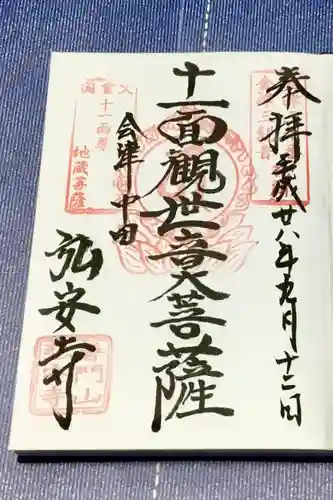 奉拝
平成廿八年九月十二日
十一面観世音大菩薩
会津中田
弘安寺
十一面尊
地蔵菩薩